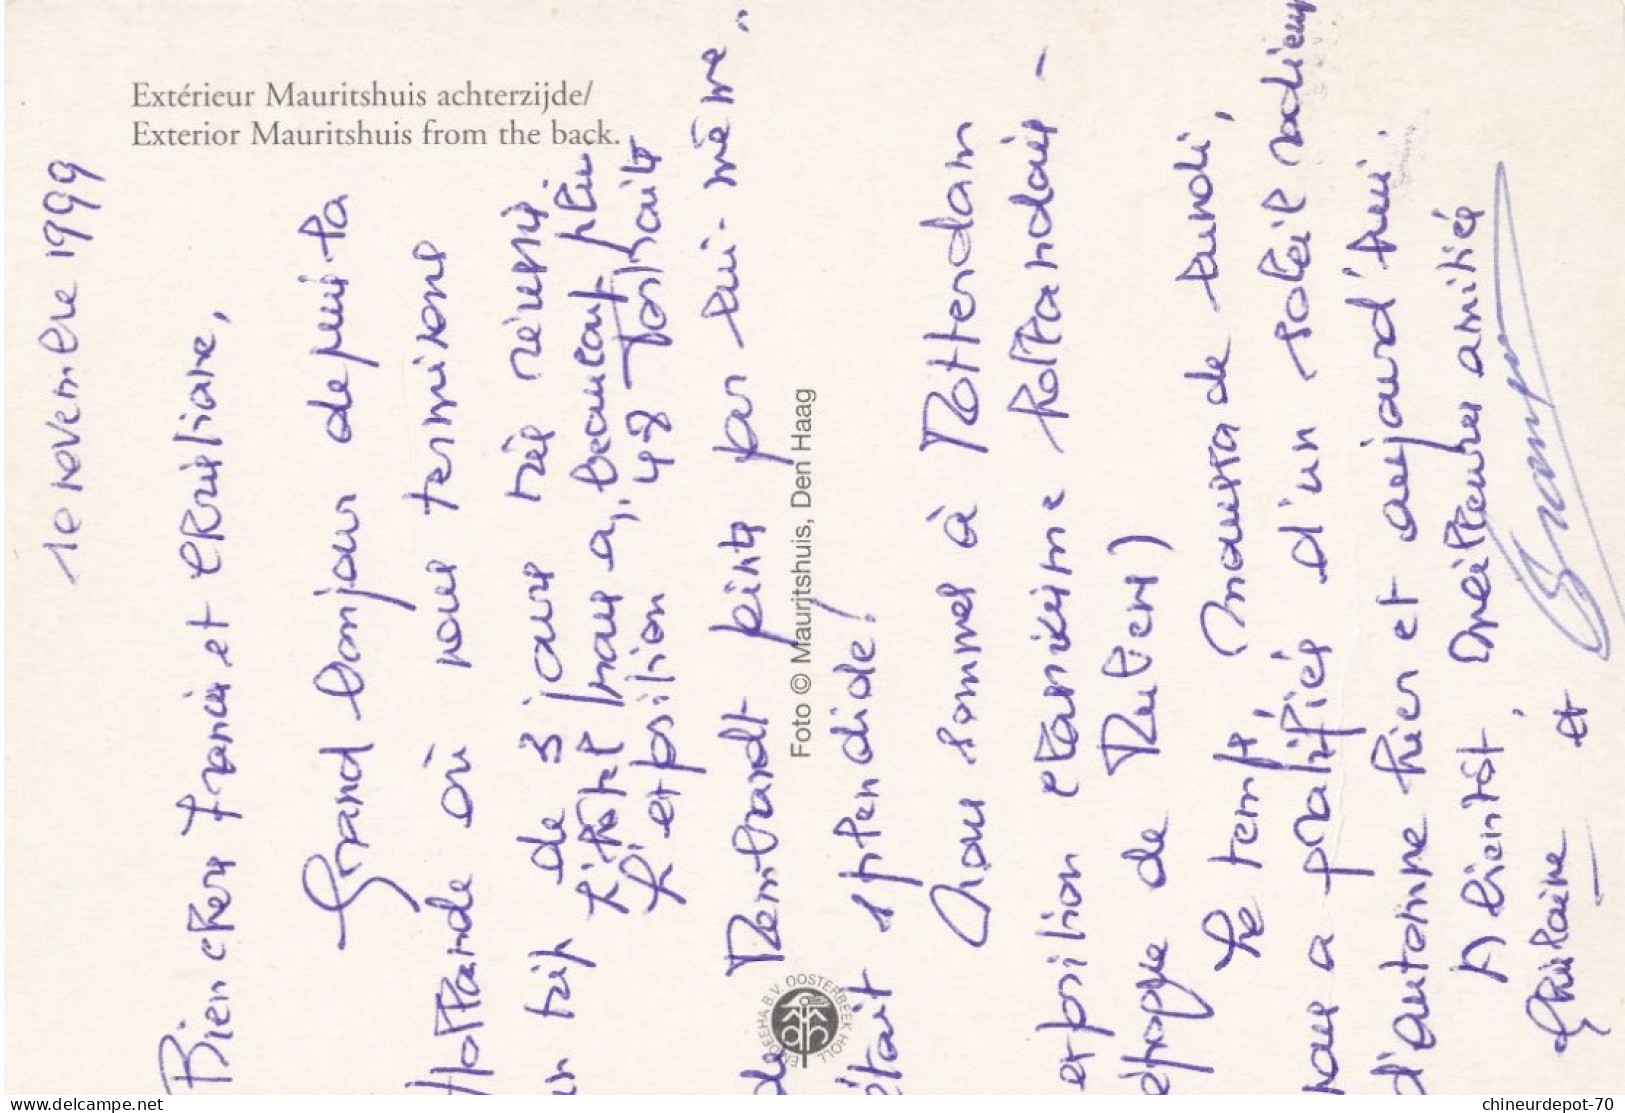 Extérieur Mauritshuis achterzijde/
Exterior Mauritshuis from the back.
1e novembre 1999
Bien chers Francis et Christiane,
Grand bonjour depuis la
Hollande où nous terminons
un trip de 3 jours très réussi.
L'hôtel nous a, beaucoup plu
L'exposition 48
de Rembrandt peints par lui-même,
était splendide!
Nous sommes à Rotterdam
exposition classicisme hollandais -
époque de Rubens)
Le temps, maussade lundi,
nous a gratifiés d'un soleil radieux
d'automne hier et aujourd'hui.
A bientôt, meilleures amitiés
Ghislaine et
Foto © Mauritshuis, Den Haag
ENDEEHA B.V. OOSTERBEEK HOLL
www.delcampe.net
chineurdepot-70